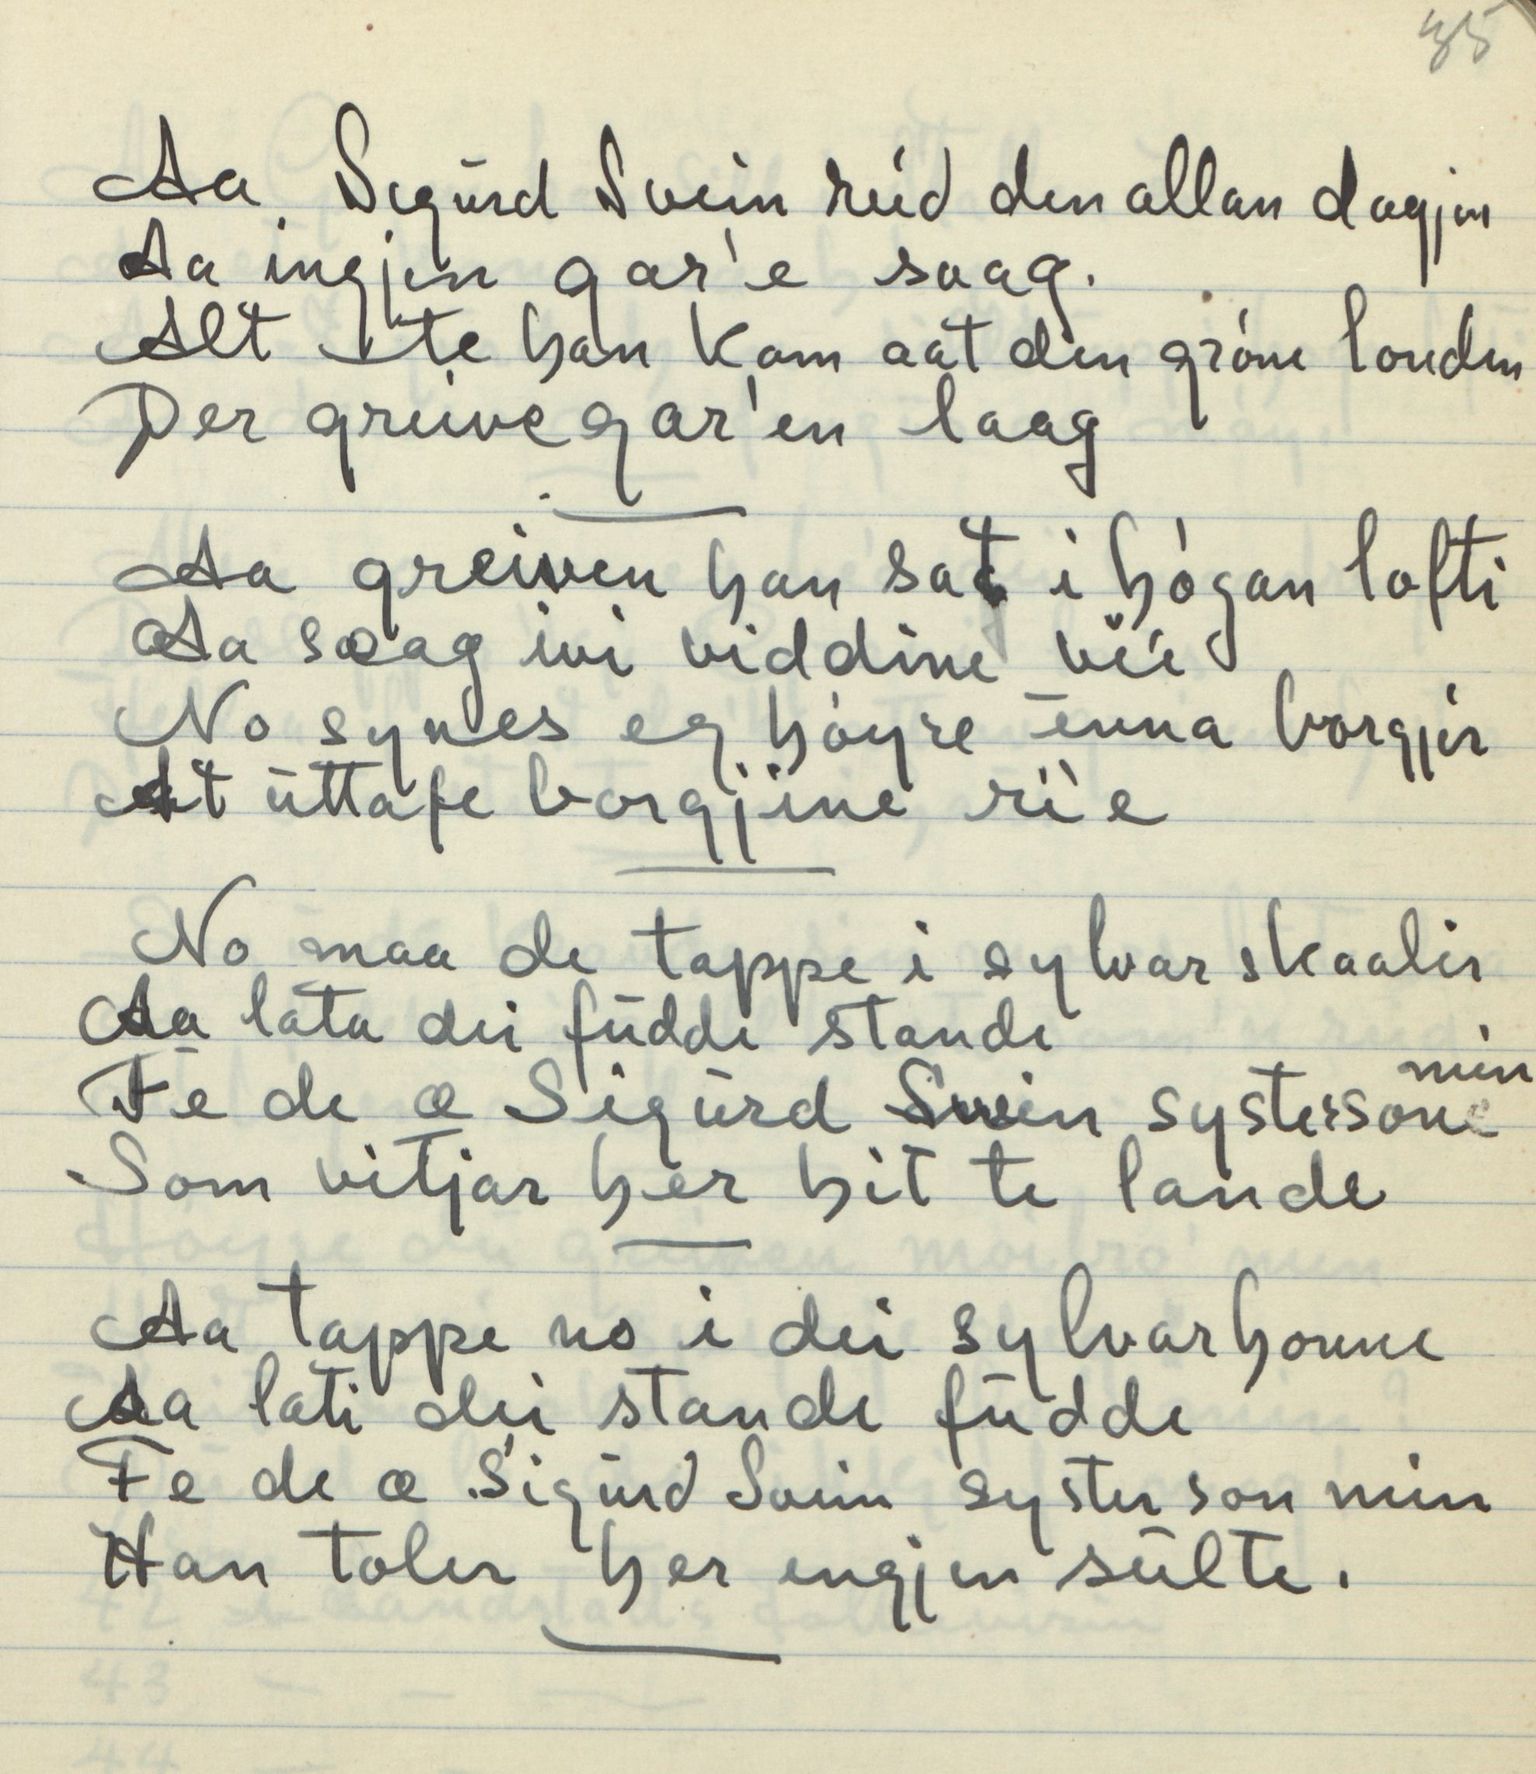 35
Aa Sigūrd Svein reid den allan dagjen
Aa ingjen gar'e saag.
Alt te han kom aat den gróne louden
Der greivegar'en laag
Aa greiven han sat i hógan lofti
Aa saag ivi viddine vi'e
No synes eg hóyre ēnna borgjir
At ūttafe borgjine ri'e
No maa de tappe i sylvarskaalir
Aa lata dei fūdde stande
Fe de æ Sigūrd Svein systerson min
Som vitjar her hit te lande
Aa tappe no i dei sylvarhonne
Aa lati dei stande fūdde
Fe de æ Sigūrd Svein syster son min
Han toler her engjen sūlte.